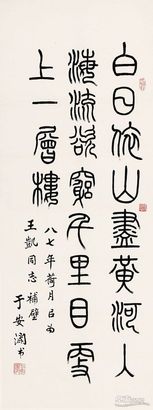 白日依山盡黃河入
海流欲窮千里目更
上一層樓
八七年荷月
王凱同志補壁
于安瀾書